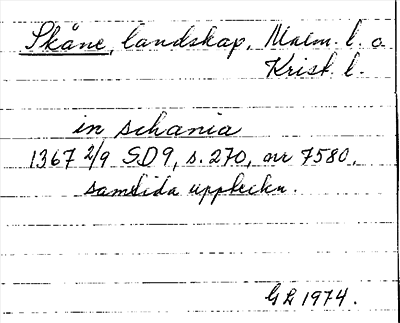 Skåne, landskap, Malm. l. o
Krist. l.
in schania
1367 2/9 SD9, s. 270, nr 7580.
samtida uppteckn.
GL 1974.